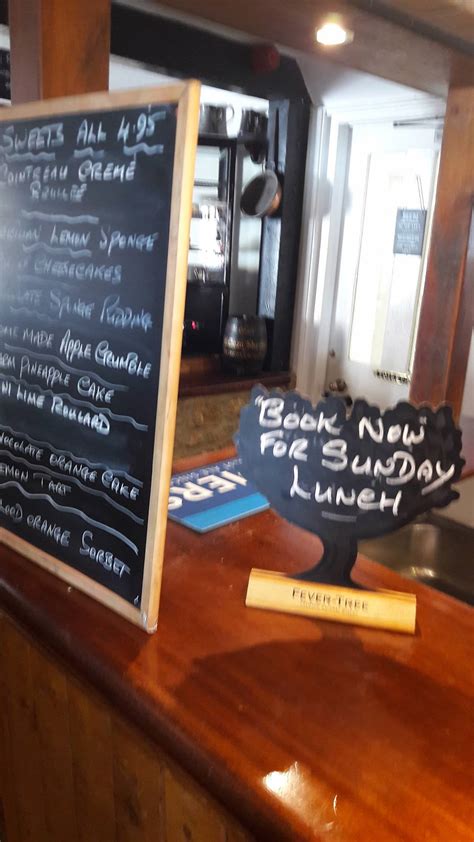 SWEETS ALL 4.95
COINTREAU CREMÉ
LEMON SPONGE
CHEESECAKES
SPONGE PUDDING
MADE APPLE CRUMBLE
PINEAPPLE CAKE
LIME ROULARD
CHOCOLATE ORANGE CAKE
LEMON TART
BLOOD ORANGE SORBET
"BOOK NOW"
FOR SUNDAY
LUNCH
FEVER-TREE